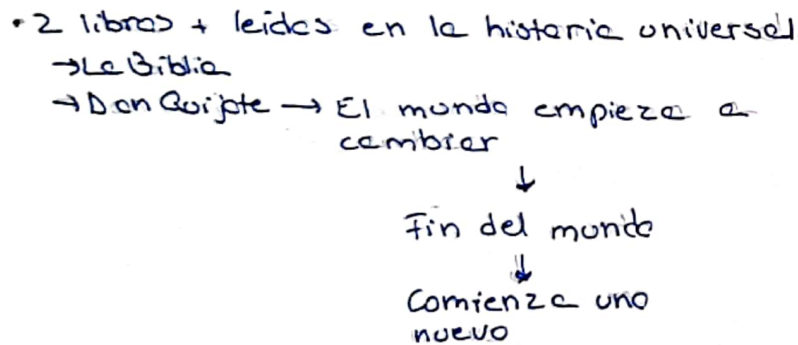 • 2 libros + leídos en la historia universal
→ La Biblia
→ Don Quijote → El mundo empieza a
cambiar
↓
Fin del mundo
↓
Comienza uno
nuevo